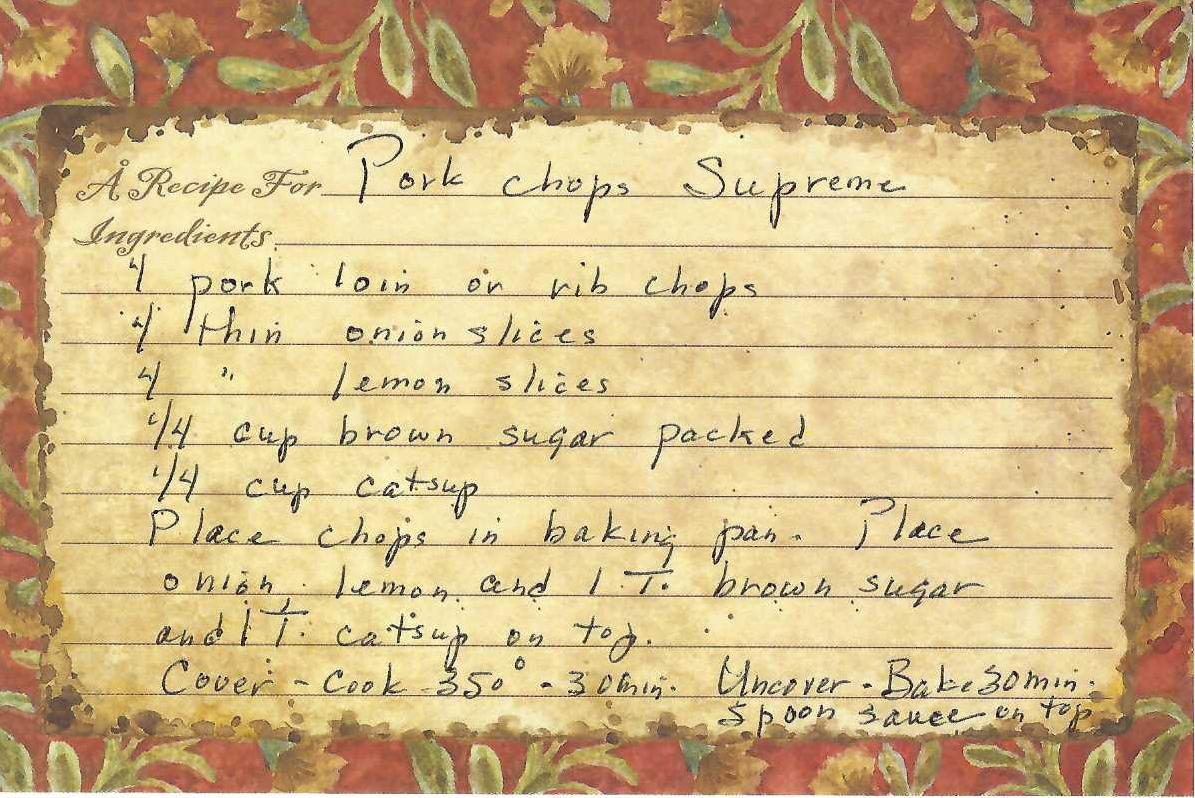 A Recipe For Pork chops Supreme
Ingredients
4 pork loin or rib chops
4 thin onion slices
4 " lemon slices
1/4 cup brown sugar packed
1/4 cup catsup
Place chops in baking pan. Place
onion, lemon and 1 T. brown sugar
and 1 T. catsup on top.
Cover - Cook 350° - 30 min. Uncover - Bake 30 min.
Spoon sauce on top